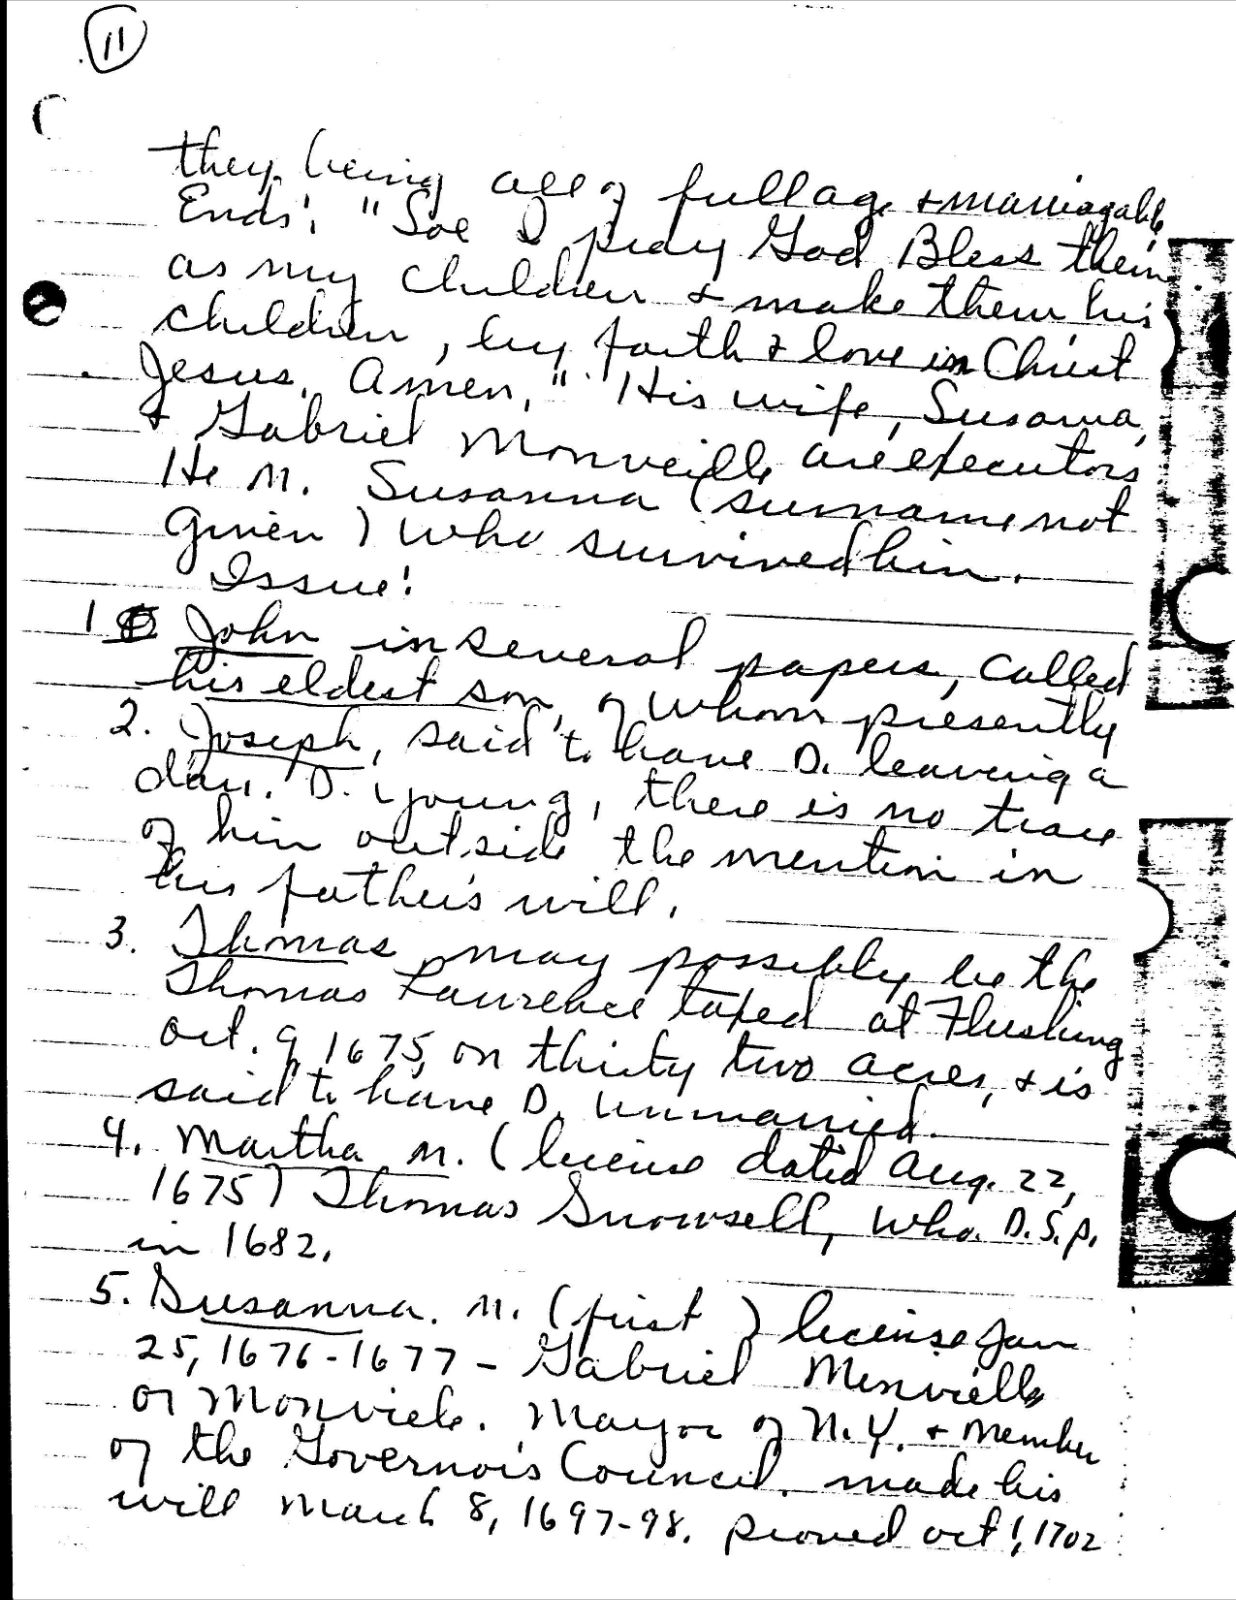 11
they being all of full age & marriagable
Ends". "Soe I pray God Bless them
as my children & make them his
children, by faith & love in Christ
Jesus, Amen," His wife, Susanna,
& Gabriel Monveille are executors
He M. Susanna (surname not
given) who survived him.
Issue:
1 John in several papers, called
his eldest son, of whom presently
2. Joseph, said to have D. leaving a
dau. D. young, there is no trace
of him outside the mention in
his father's will.
3. Thomas may possibly be the
Thomas Lawrence taxed at Flushing
Oct. 9 1675, on thirty two acres, & is
said to have D. unmarried.
4. Martha M. (license dated Aug. 22,
1675) Thomas Snowsell, who D.S.p.
in 1682.
5. Susanna. M. (first) license Jan
25, 1676-1677 - Gabriel Minvielle
or Monviele. Mayor of N.Y. & Member
of the Governor's Council. made his
will March 8, 1697-98. proved Oct 1, 1702